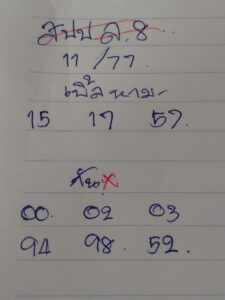 สปป ล.8
11/77
เพื่อ หาม.
15 17 57.
กัน X
00. 02 03
94 98. 52.